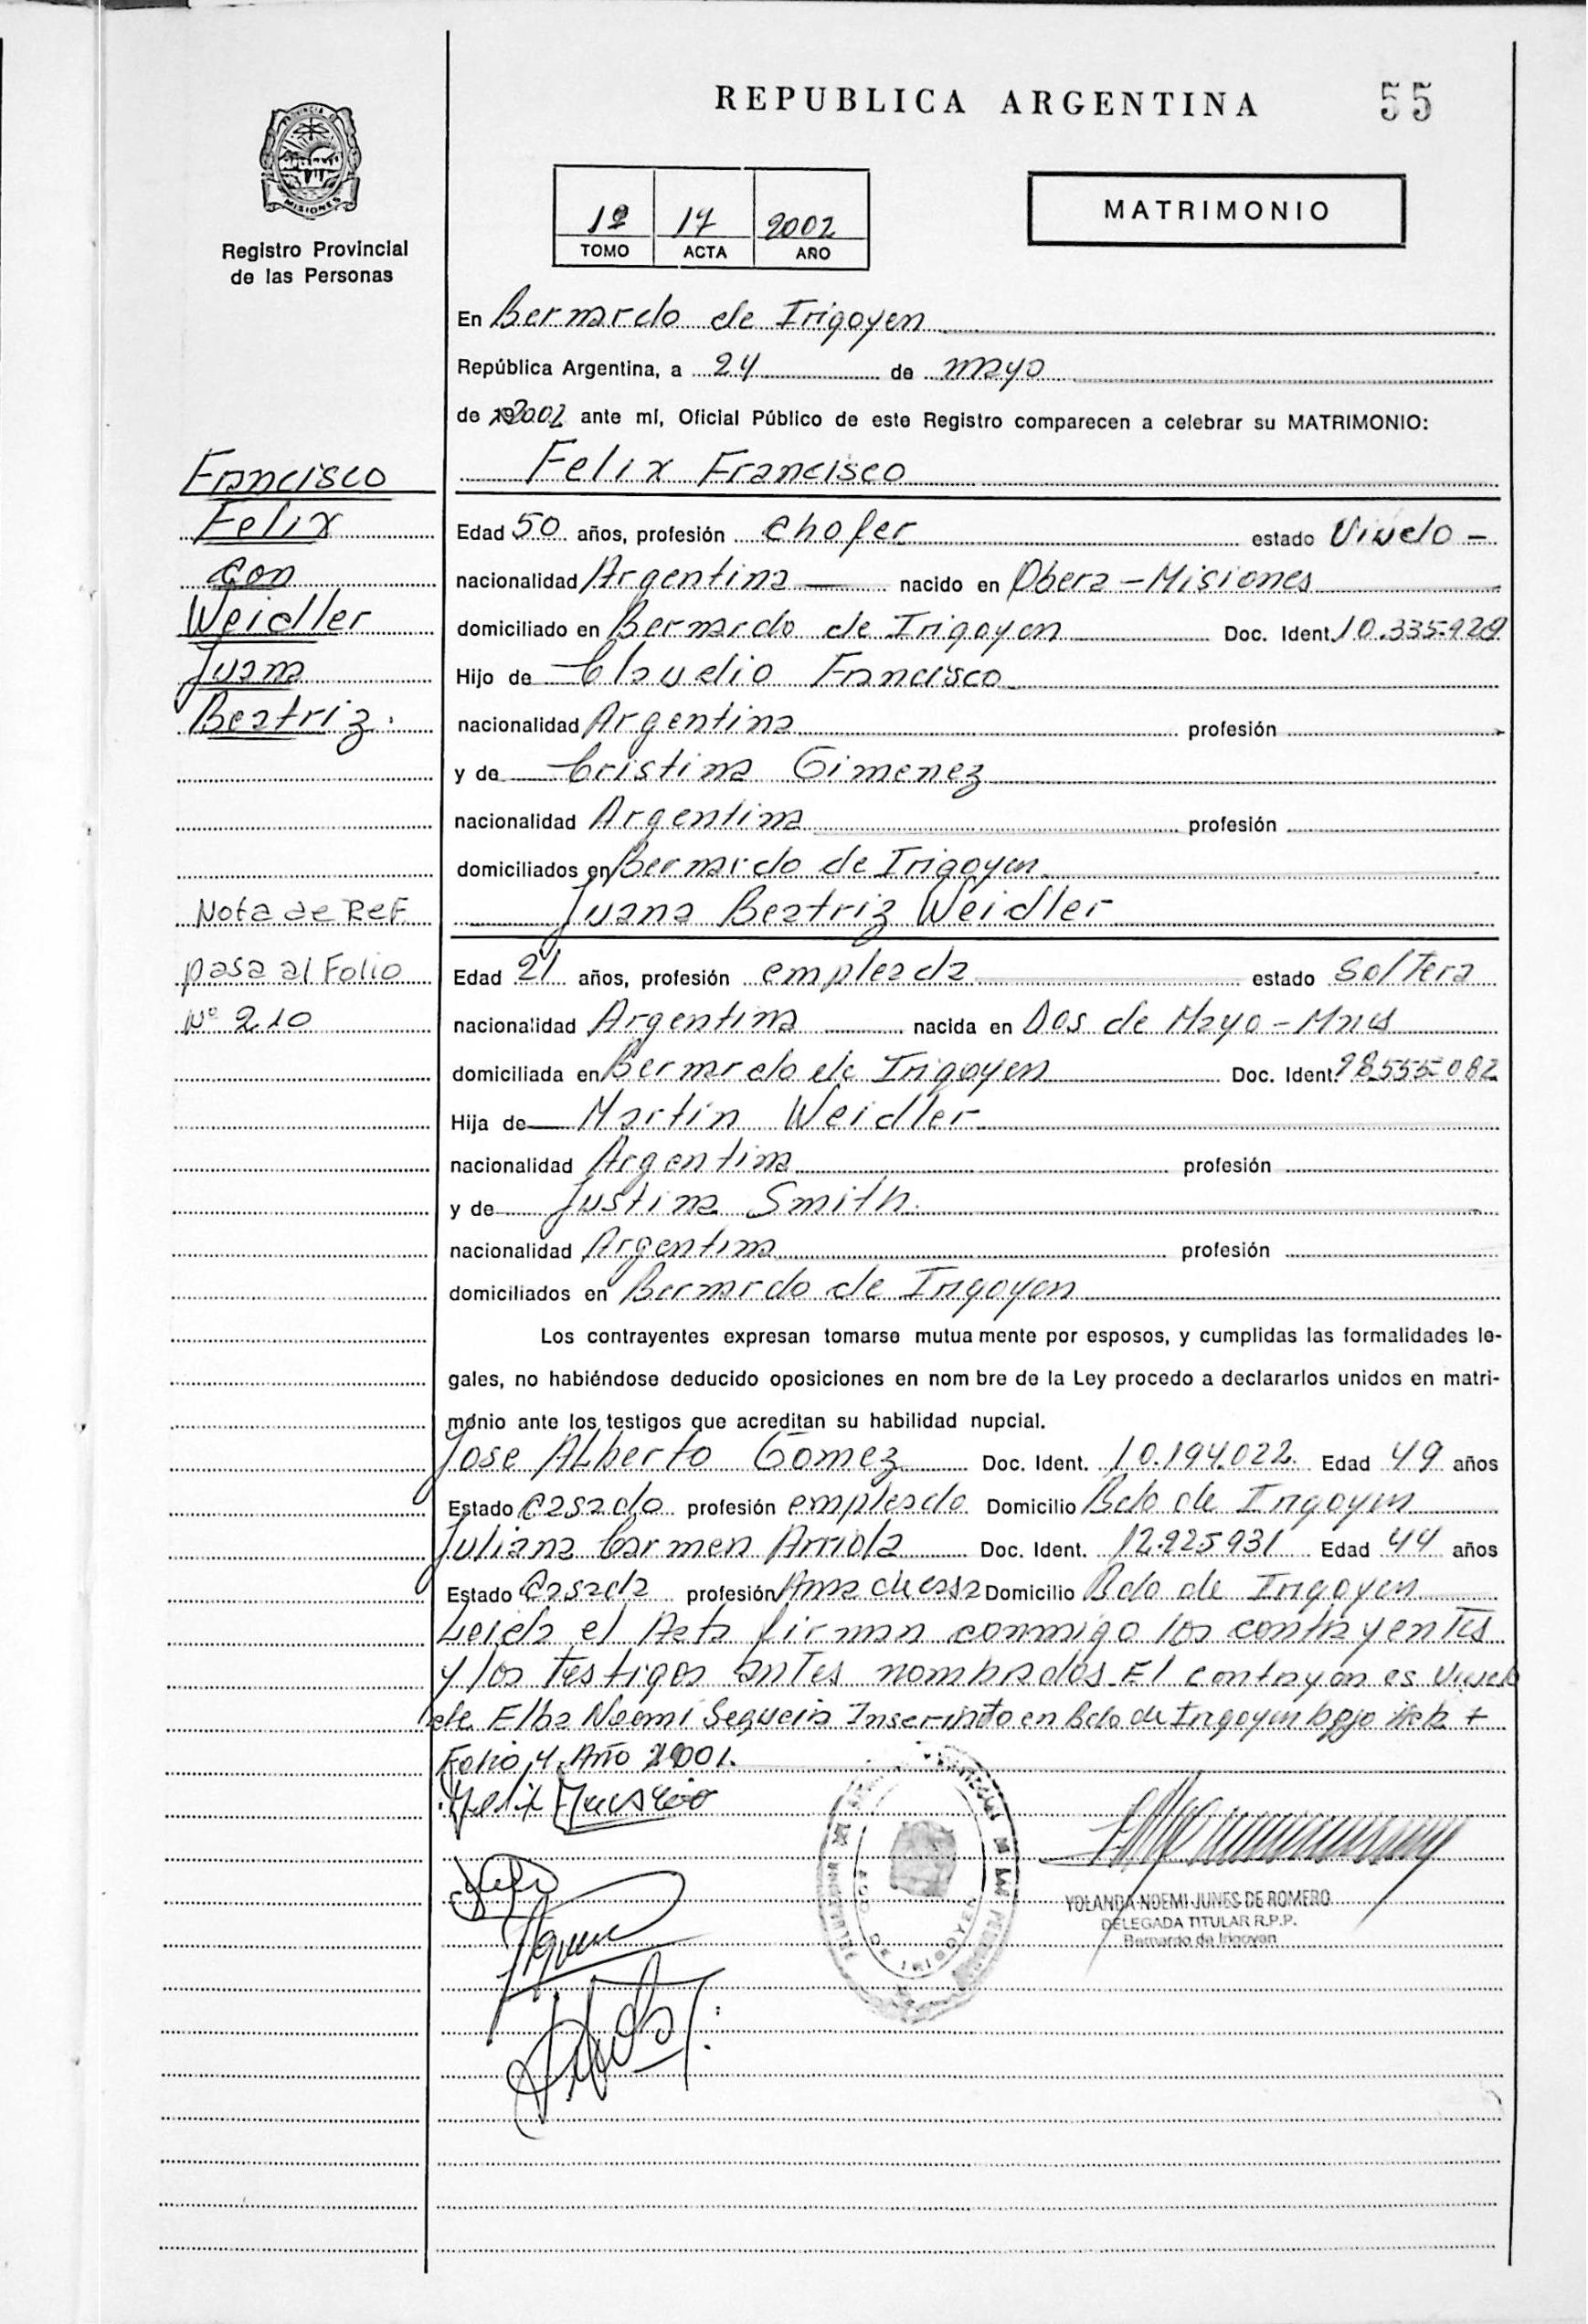 REPUBLICA ARGENTINA
55
PROVINCIA DE
MISIONES
Registro Provincial
de las Personas
1º 17 2002
TOMO ACTA AÑO
MATRIMONIO
En Bernardo de Irigoyen
República Argentina, a 24 de mayo
de 2002 ante mí, Oficial Público de este Registro comparecen a celebrar su MATRIMONIO:
Felix Francisco
Edad 50 años, profesión chofer estado Viudo -
nacionalidad Argentina nacido en Obera - Misiones
domiciliado en Bernardo de Irigoyen Doc. Ident. 10.335.929
Hijo de Claudio Francisco
nacionalidad Argentina profesión
y de Cristina Gimenez
nacionalidad Argentina profesión
domiciliados en Bernardo de Irigoyen
Juana Beatriz Weidler
Edad 21 años, profesión empleada estado Soltera
nacionalidad Argentina nacida en Dos de Mayo - Mnes
domiciliada en Bernardo de Irigoyen Doc. Ident. 28.555.082
Hija de Martin Weidler
nacionalidad Argentina profesión
y de Justina Smith
nacionalidad Argentina profesión
domiciliados en Bernardo de Irigoyen
Los contrayentes expresan tomarse mutua mente por esposos, y cumplidas las formalidades le-
gales, no habiéndose deducido oposiciones en nom bre de la Ley procedo a declararlos unidos en matri-
monio ante los testigos que acreditan su habilidad nupcial.
Jose ALberto Gomez Doc. Ident. 10.194.022 Edad 49 años
Estado Casado profesión empleado Domicilio Bdo de Irigoyen
Juliana Carmen Arriola Doc. Ident. 12.925931 Edad 44 años
Estado Casada profesión Ama de casa Domicilio Bdo de Irigoyen
Leida el Acta firman conmigo los contrayentes
y los Testigos antes nombrados. El contrayen es Viudo
de Elba Noemi Sequeira Inscripto en Bdo de Irigoyen bajo
Folio 4 Año 2001.
YOLANDA NOEMI JUNES DE ROMERO
DELEGADA TITULAR R.P.P.
Bernardo de Irigoyen
DE IRIGOYEN
Francisco
Felix
con
Weidler
Juana
Beatriz.
Nota de Ref
pasa al Folio
Nº 210